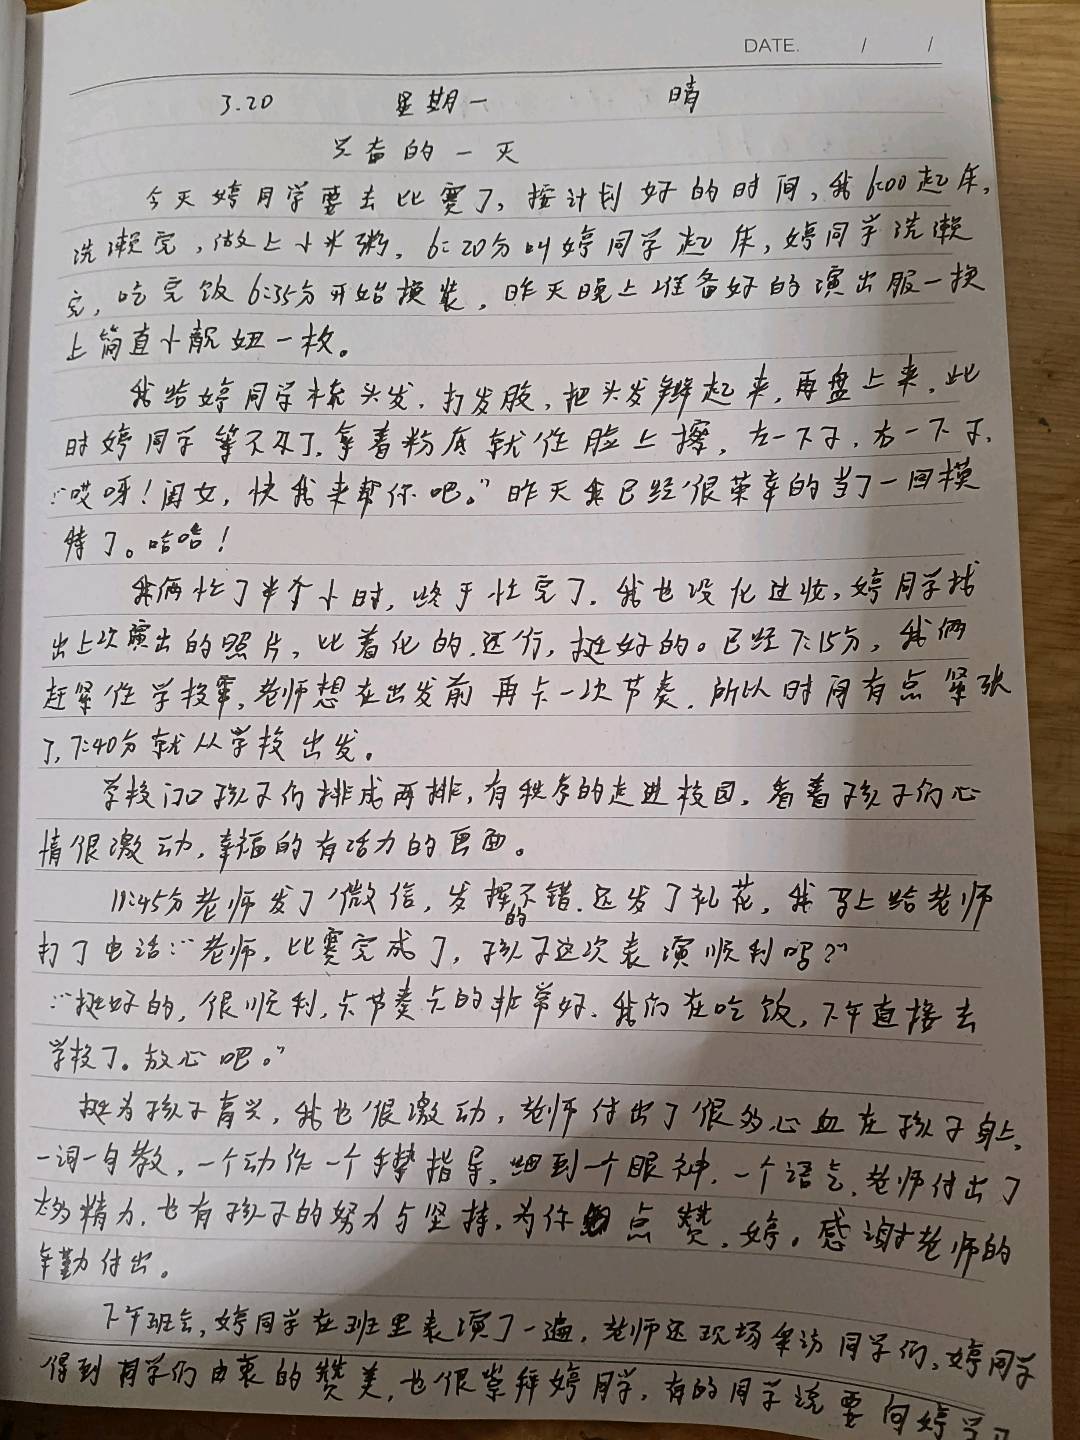 DATE. / /
3.20 星期一 晴
兴奋的一天
今天婷同学要去比赛了,按计划好的时间,我6:00起床,
洗漱完,做上小米粥,6:20分叫婷同学起床,婷同学洗漱
完,吃完饭6:35分开始换装,昨天晚上准备好的演出服一换
上简直小靓妞一枚。
我给婷同学梳头发,打发胶,把头发辫起来,再盘上来,此
时婷同学等不及了,拿着粉底就往脸上擦,左一下子,右一下子,
:“哎呀!闺女,快我来帮你吧。”昨天我已经很荣幸的当了一回模
特了。哈哈!
我俩忙了半个小时,终于忙完了,我也没化过妆,婷同学找
出上次演出的照片,比着化的,还行,挺好的。已经7:15分,我俩
赶紧往学校,老师想在出发前再卡一次节奏,所以时间有点紧张
了,7:40分就从学校出发。
学校门口孩子们排成两排,有秩序的走进校园,看着孩子们心
情很激动,幸福的有活力的画面。
11:45分老师发了微信,发挥的不错,还发了礼花,我马上给老师
打了电话:“老师,比赛完成了,孩子这次表演顺利吗?”
:“挺好的,很顺利,卡节奏卡的非常好,我们在吃饭,下午直接去
学校了。放心吧。”
挺为孩子高兴,我也很激动,老师付出了很多心血在孩子身上,
一词一句教,一个动作一个手势指导,细到一个眼神,一个语气,老师付出了
太多精力,也有孩子的努力与坚持,为你点赞,婷。感谢老师的
辛勤付出。
下午班会,婷同学在班里表演了一遍,老师还现场采访同学们,婷同学
得到同学们由衷的赞美,也很崇拜婷同学,有的同学说要向婷学习